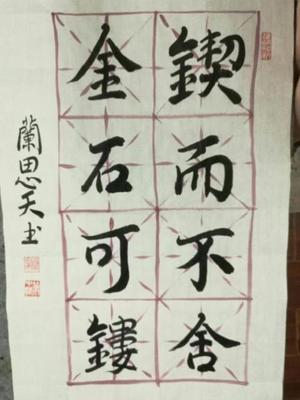 鍥而不舍
金石可鏤
蘭思天书